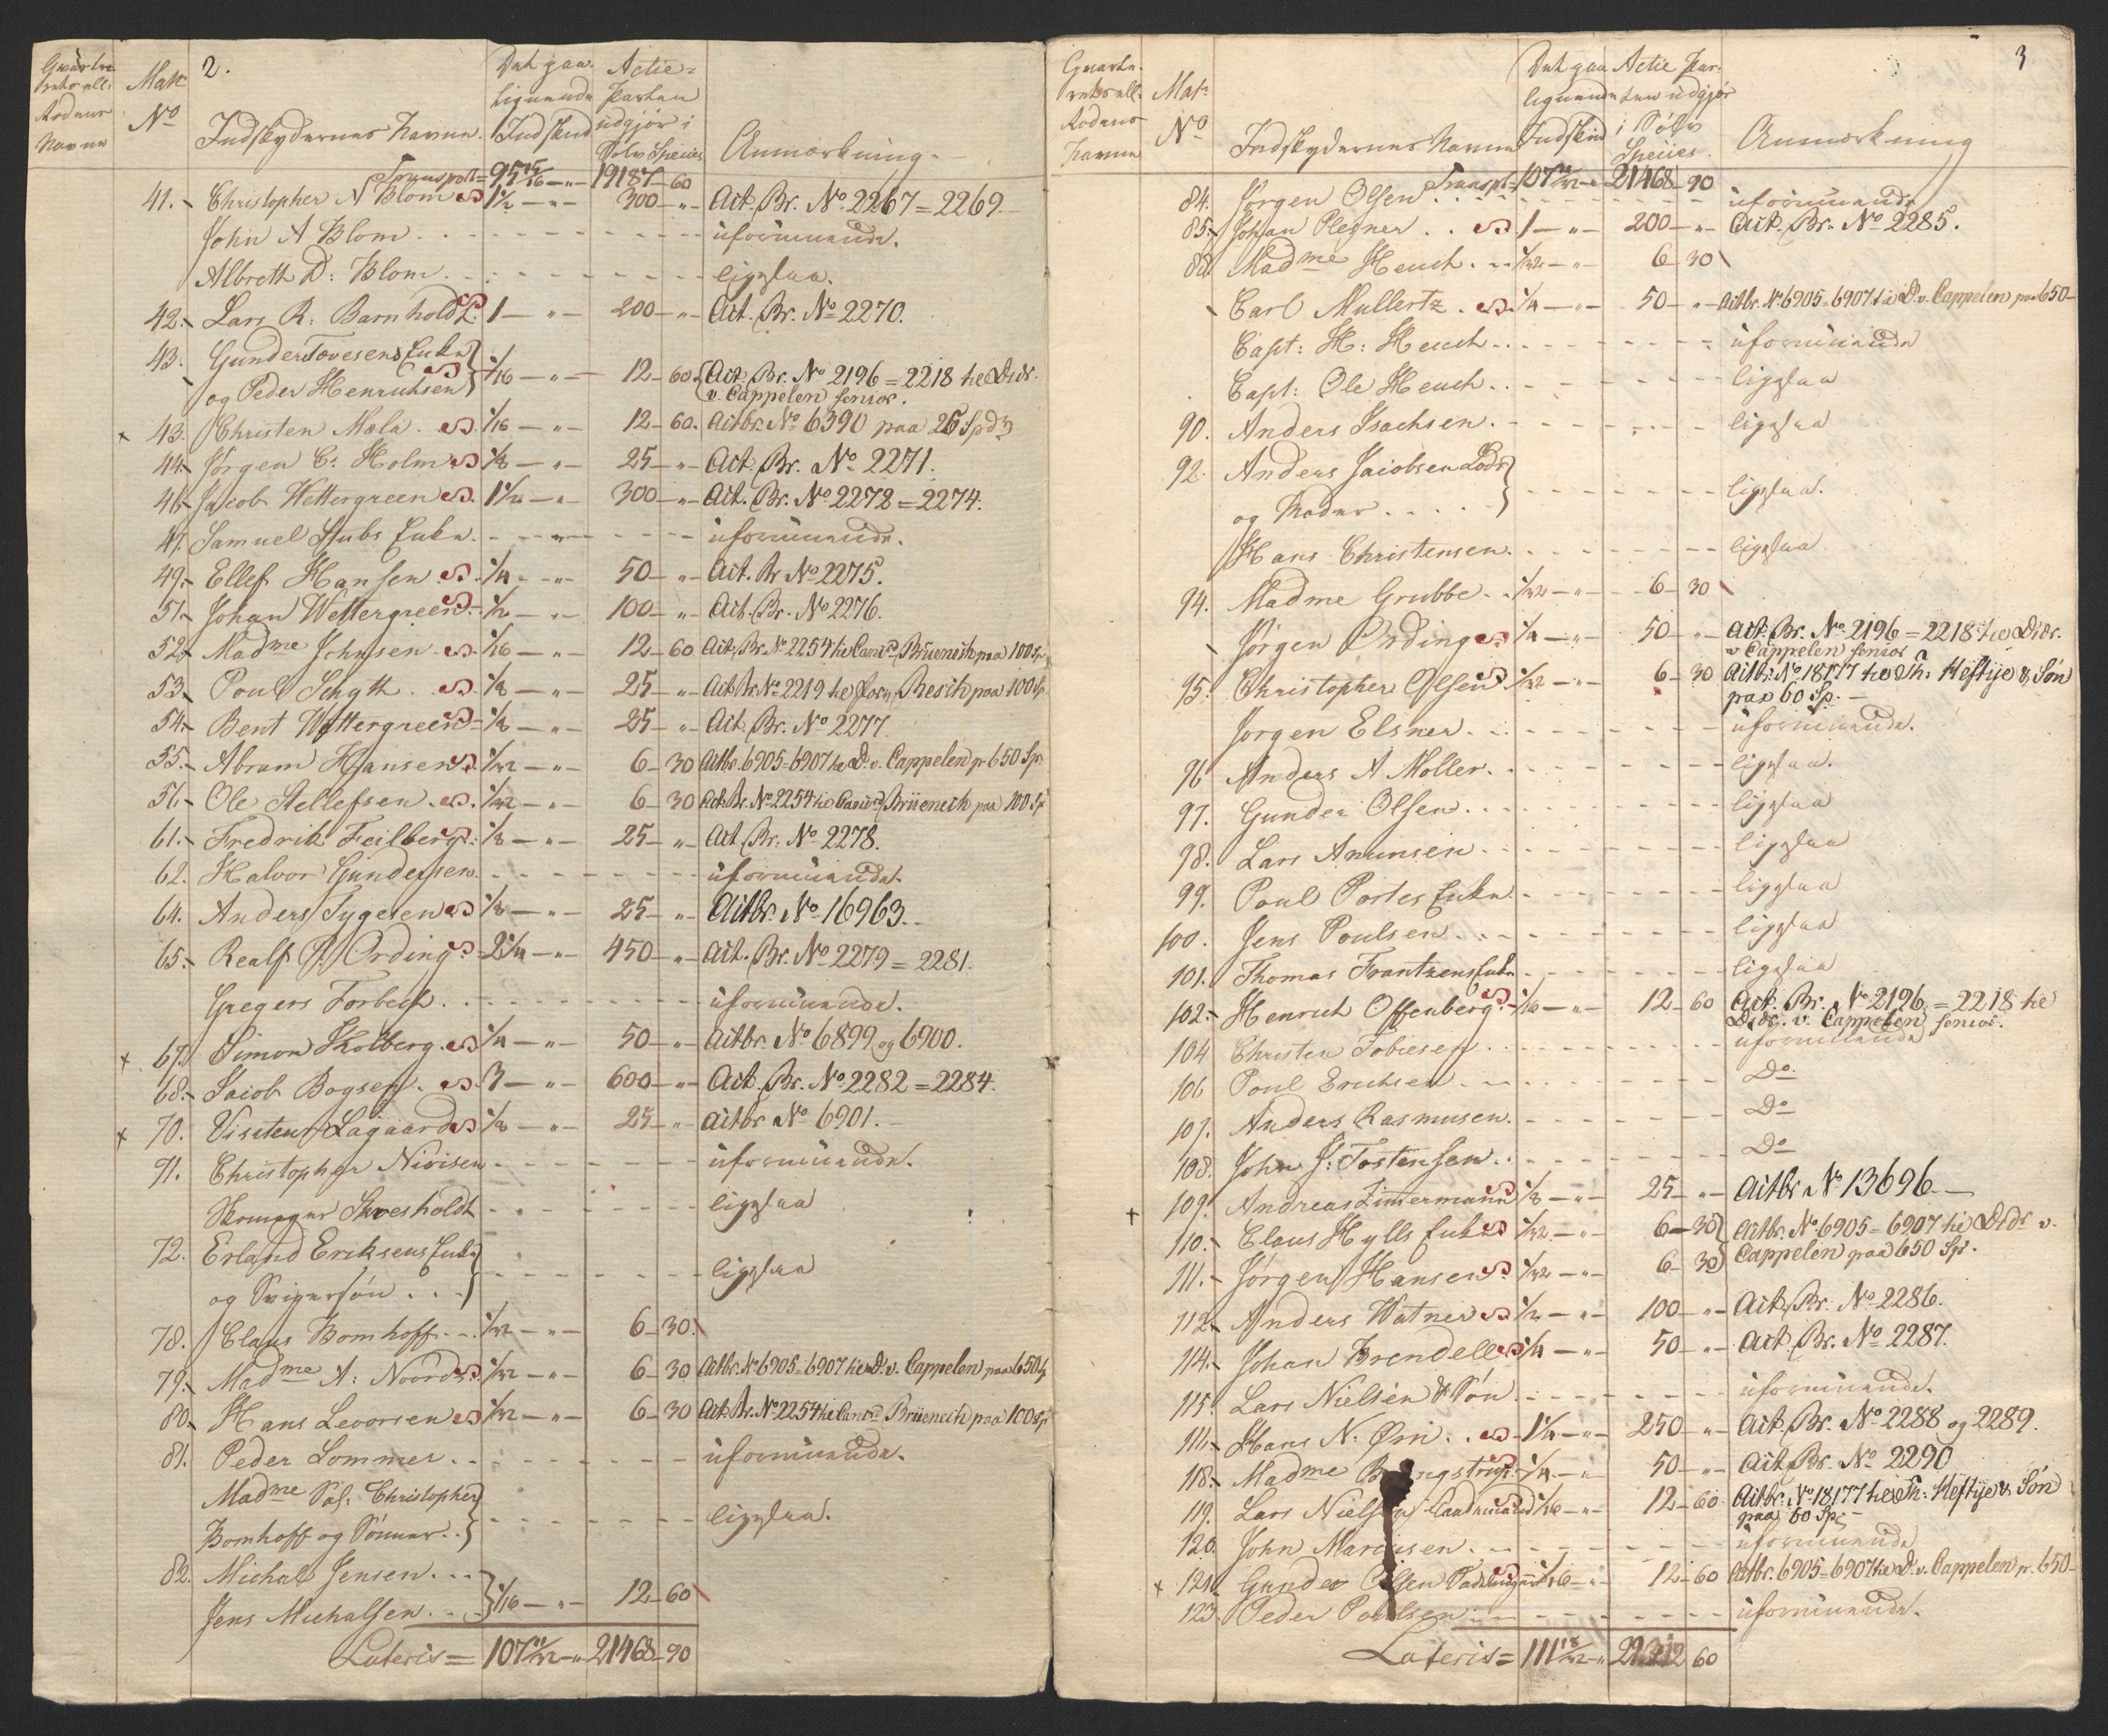 2.
Qvarte
rets ell:
Rodens
Navne
Matr
No
Indskydernes Navne.
Det paa-
lignende
Indskud
Actie-
Parten
udgjør i
Sølv Species
Anmærkning.
Transport = 95 15/16 — " — 19187 - 60
41. Christopher A Blom 1 1/2 — " — 300 — " — Act. Br. No. 2267 = 2269.
John A Blom uformuende.
Albreth D: Blom ligesaa.
42. Lars R: Barnholdt 1 — " — 200 — " — Act. Br. No 2270.
43. Gunder Tovesens Enke
og Peder Henrichsen 1/16 — " — 12 - 60. Act. Br. No 2196 = 2218 hos Didr.
v. Cappelen senior.
x 43. Christen Mæla 1/16 — " — 12 - 60. Actbr. No 6390 paa 25 Spd
44. Jørgen C: Holm 1/8 — " — 25 — " — Act. Br. No 2271.
46. Jacob Wettergreen 1 1/2 — " — 300 — " — Act. Br. No 2272 = 2274.
47. Samuel Stubs Enke uformuende.
49. Ellef Hansen 1/4 — " — 50 — " — Act. Br No 2275.
51. Johan Wettergreen 1/2 — " — 100 — " — Act. Br. No 2276.
52. Madme Johnsen 1/16 — " — 12 - 60 Act. Br. No 2254 hos Brüenech paa 100 Sp
53. Poul Schytt 1/8 — " — 25 — " — Act. Br. No 2219 hos Resch paa 100 Sp.
54. Bent Wettergreen 1/8 — " — 25 " Act. Br. No 2277
55. Abram Hansen 1/32 — " — 6 - 30 Actbr. 6905 = 6907 hos D. v. Cappelen pr 650 Sp.
56. Ole Stellefsen 1/32 — " — 6 - 30 Act. Br. No 2254 hos Brüenech paa 100 Sp
61. Fredrik Feilberg 1/8 — " — 25 — " — Act. Br. No 2278.
62. Halvor Gundersen uformuende.
64. Anders Tygesen 1/8 — " — 25 — " Actbr. No 16963.
65. Realf P. Ording 2 1/4 — " — 450 — " — Act. Br. No 2279 = 2281.
Gregers Forbech uformuende.
x 67. Simon Kolberg 1/4 — " — 50 — " — Actbr. No 6899 og 6900.
68. Jacob Bogsen 3 — " — 600 — " — Act. Br. No. 2282 = 2284.
x 70. Visiteur Lagaard 1/8 — " — 25 — " — Actbr No 6901.
71. Christopher Nirisen uformuende.
Skomager Skresholdt ligesaa
72. Erland Eriksens Enke
og Svigersøn ligesaa
78. Claus Bomhoff 1/32 — " — 6 - 30.
79. Madme A: Noord 1/32 — " — 6 - 30 Actbr. No 6905 = 6907 hos D. v. Cappelen paa 650 Sp
80. Hans Levorsen 1/32 — " — 6 - 30 Act. Br. No 2254 hos Brüenech paa 100 Sp
81. Peder Lommer uformuende.
Madme Sal: Christopher
Bomhoff og Sønner ligesaa.
82. Michael Jensen
Jens Michalsen 1/16 — " — 12 - 60
Lateris = 107 11/32 — " 21468 - 90
3
Qvarte-
rets ell.
Rodens
Navne
Matr
No
Indskydernes Navne
Det paa
lignende
Indskud
Actie Par-
ten udgjør
i Sølv
Species.
Anmærkning
Transpt = 107 11/32 — " 21468 - 90
84. Jørgen Olsen uformuende
85. Johan Plesner 1 — " — 200 — " — Act. Br. No 2285.
88. Madme Heuch 1/32 — " 6 - 30
Carl Mullertz 1/4 — " — 50 — " — Actbr. No 6905 = 6907 hos D. v. Cappelen paa 650 —
Capt: H: Heuch uformuende
Capt: Ole Heuch ligesaa
90. Anders Isachsen ligesaa
92. Anders Jacobsen Lods
og Moder ligesaa.
Hans Christensen ligesaa
94. Madme Grubbe 1/32 — " — 6 - 30
Jørgen Ording 1/4 — " — 50 — " — Act. Br. No 2196 = 2218 hos Didr.
v Cappelen senior
95. Christopher Olsen 1/32 — " — 6 - 30 Actbr. No. 18177 hos Th: Heftye & Søn
paa 60 Sp. —
Jørgen Elsner uformuende.
96 Anders A Moller ligesaa.
97. Gunder Olsen ligesaa
98. Lars Amunsen ligesaa
99. Poul Portes Enke ligesaa
100. Jens Poulsen ligesaa
101. Thomas Frantzens Enke ligesaa
102. Henrich Offenberg 1/16 — " — 12 - 60 Act. Br. No 2196 = 2218 hos
Didr. v. Cappelen senior.
104 Christen Tobiesen uformuende
106 Poul Erichsen Do
107. Anders Rasmusen Do
108. John J: Tostensen Do
x 109. Andreas Zimmermann 1/8 — " — 25 — " — Actbr No 13696. —
110. Claus Hylls Enke 1/32 — " — 6 - 30 Actbr. No 6905 = 6907 hos Didr v.
111. Jørgen Hansen 1/32 — " — 6 - 30 Cappelen paa 650 Sp.
112. Anders Watner 1/2 — " — 100 — " — Act. Br. No 2286.
114. Johan Brendell 1/4 — " — 50 — " — Act. Br. No 2287.
115. Lars Nielsen & Søn uformuende.
116. Hans N: Ørn 1 1/4 — " — 250 — " — Act. Br. No 2288 og 2289.
118. Madme 1/4 — " 50 — " — Act. Br. No 2290
119. Lars Nielsen 1/16 — " — 12 - 60 Actbr. No 18177 hos Th: Heftye & Søn
paa 60 Sp. —
120. John Mariusen uformuende
x 121. Gunder Olsen 1/16 — " — 12 - 60 Actbr. 6905 = 6907 hos D. v. Cappelen pr. 650 —
123. Peder Poulsen uformuende.
Lateris = 111 18/32 — " 60